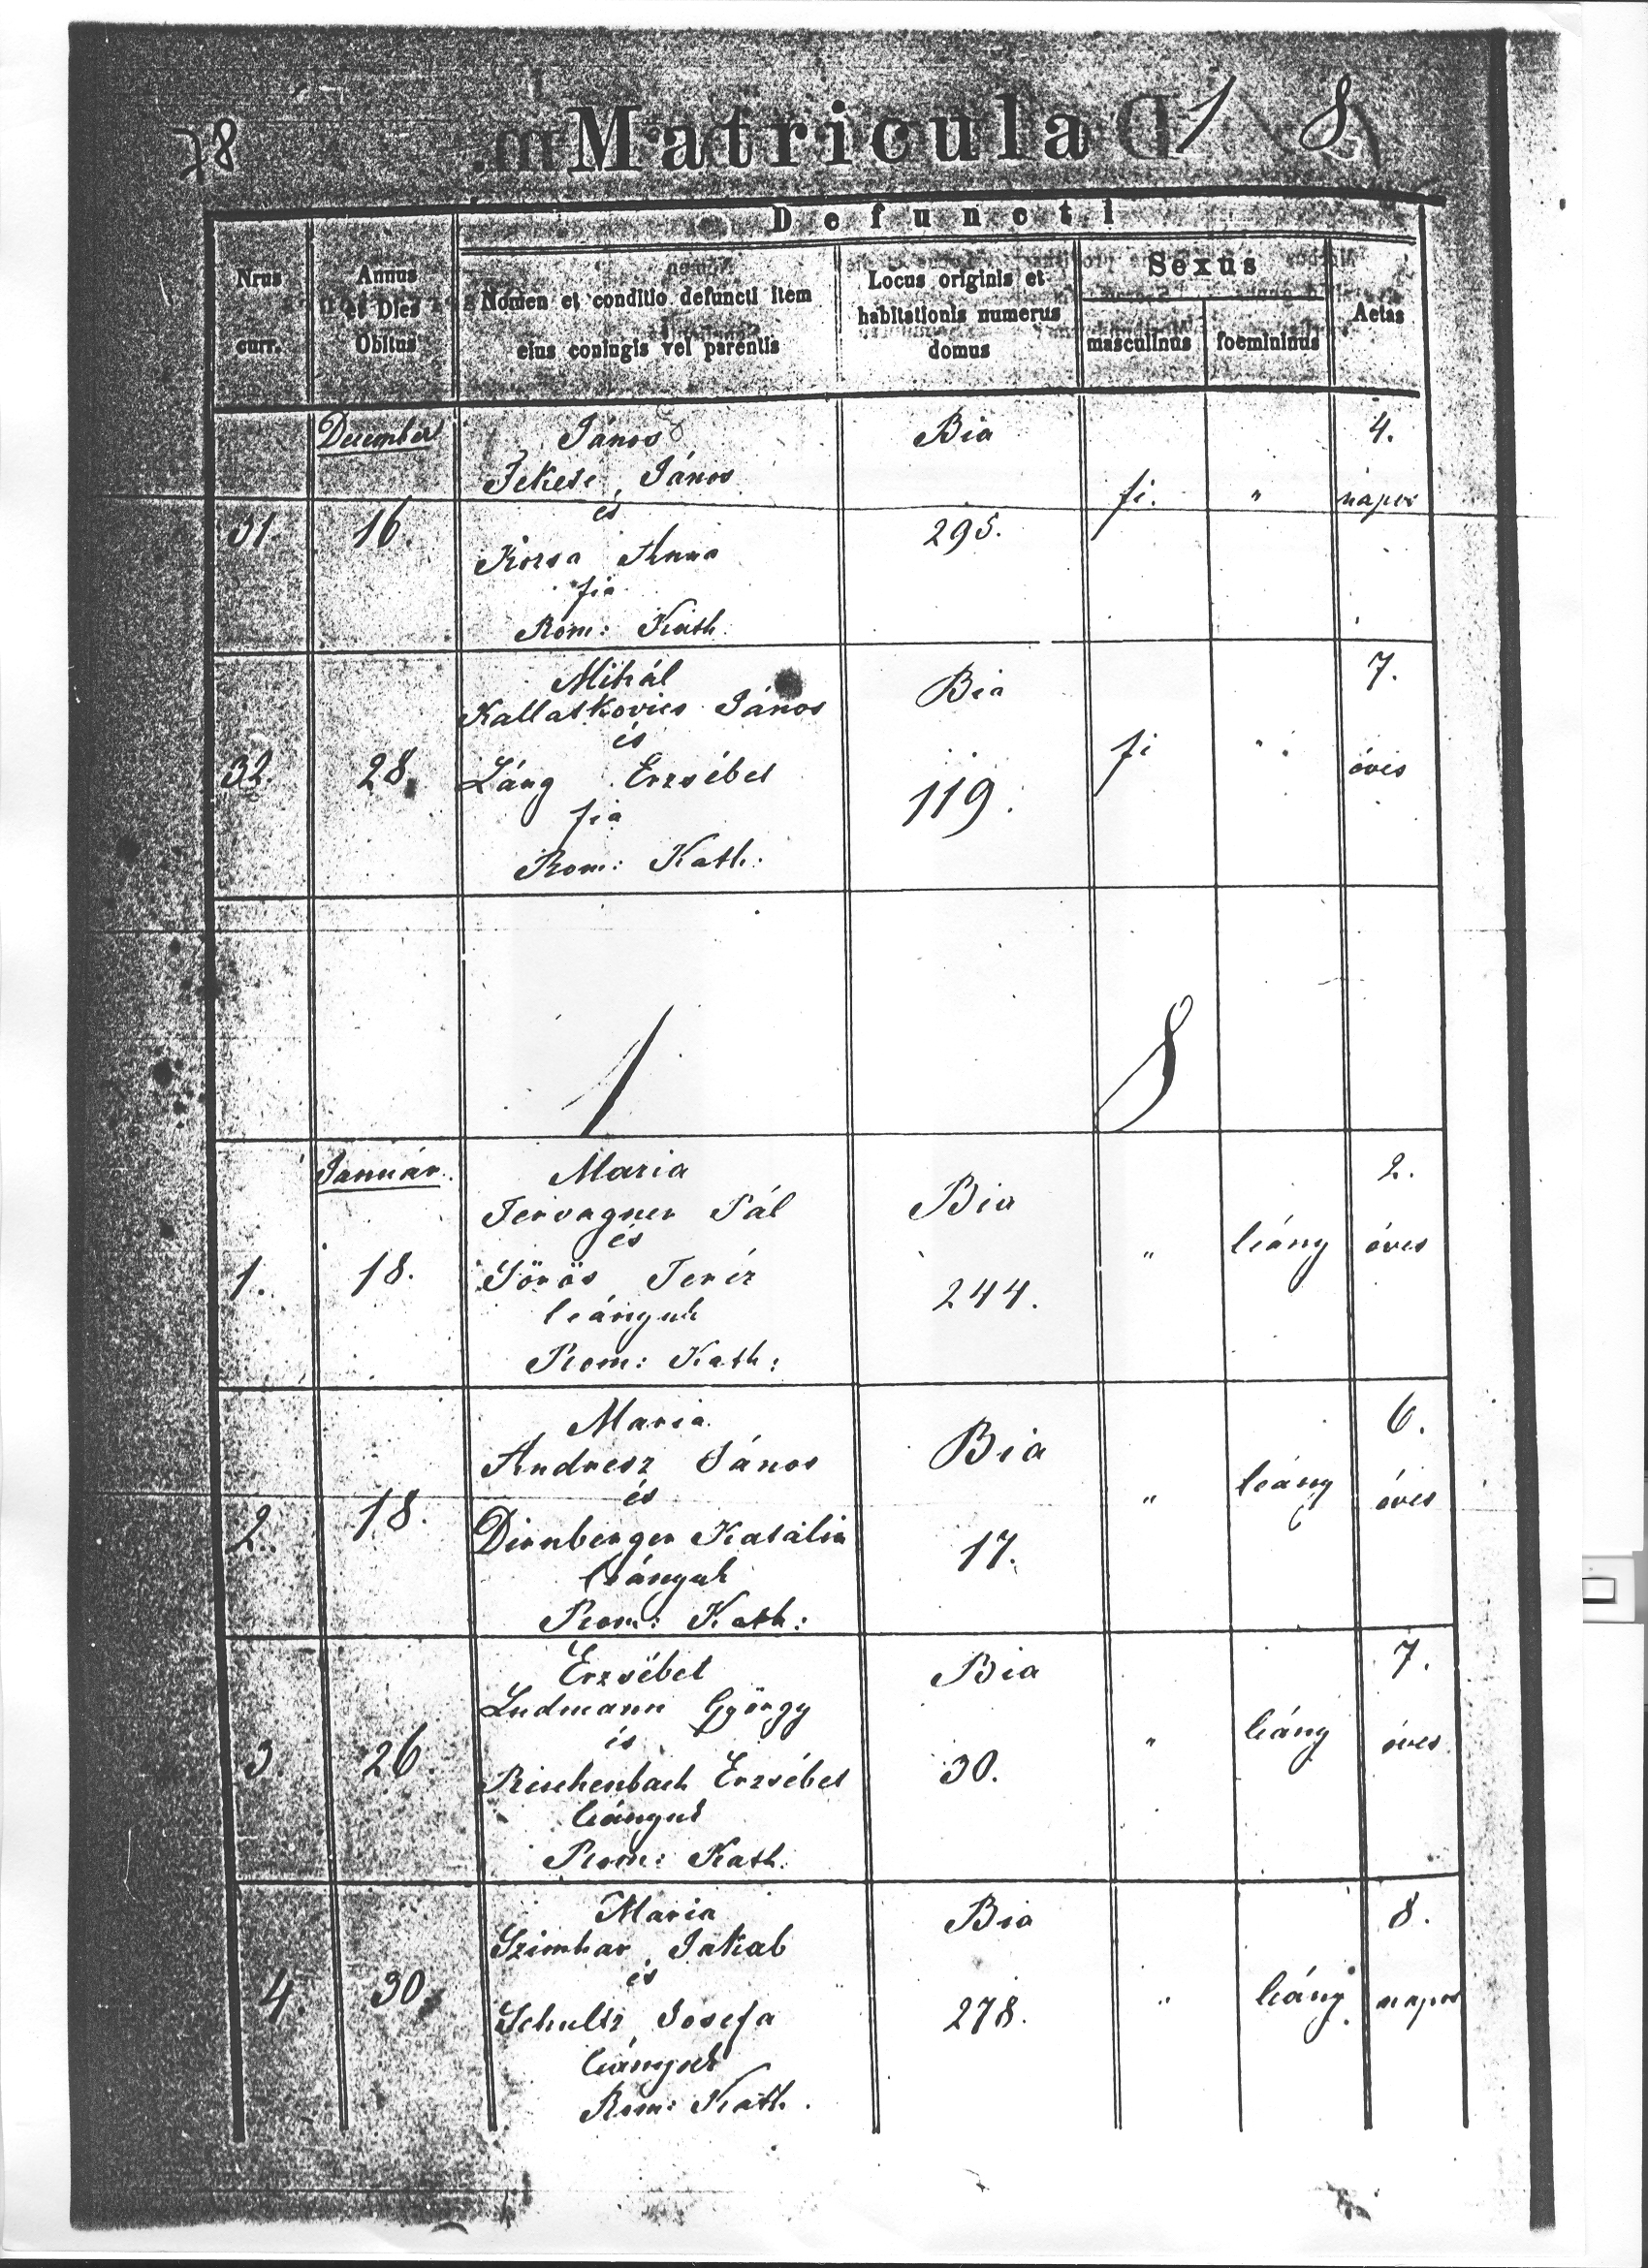 78 Matricula 1 8
Defuncti
Nrus curr.
Annus et Dies Obitus
Nomen et conditio defuncti item
eius coniugis vel parentis
Locus originis et
habitationis numerus
domus
Sexus
masculinus foemininus
Aetas
December János Bia 4.
Fekete János
fi. " napos
és
31. 16. 295.
Korsa Anna
fia
Rom: Kath:
Mihál Bia 7.
Kallatkovics János
és fi "
32. 28. Láng Erzsébet 119. óves
fia
Rom: Kath:
1 8
Január. Maria Bia 2.
Tervagner Pál
és " leány óves
1. 18. Sörös Teréz 244.
leányuk
Rom: Kath:
Maria Bia 6.
Andresz János
és " leány óves
2. 18. Dirnberger Katalin 17.
leányuk
Rom: Kath:
Erzsébet Bia 7.
Ludmann György
és " leány óves
3. 26. Reichenbach Erzsébet 30.
leányuk
Rom: Kath:
Maria Bia 8.
Szimhar Jakab
és " leány napos
4. 30. Schultz Josefa 278.
leányuk
Rom: Kath.